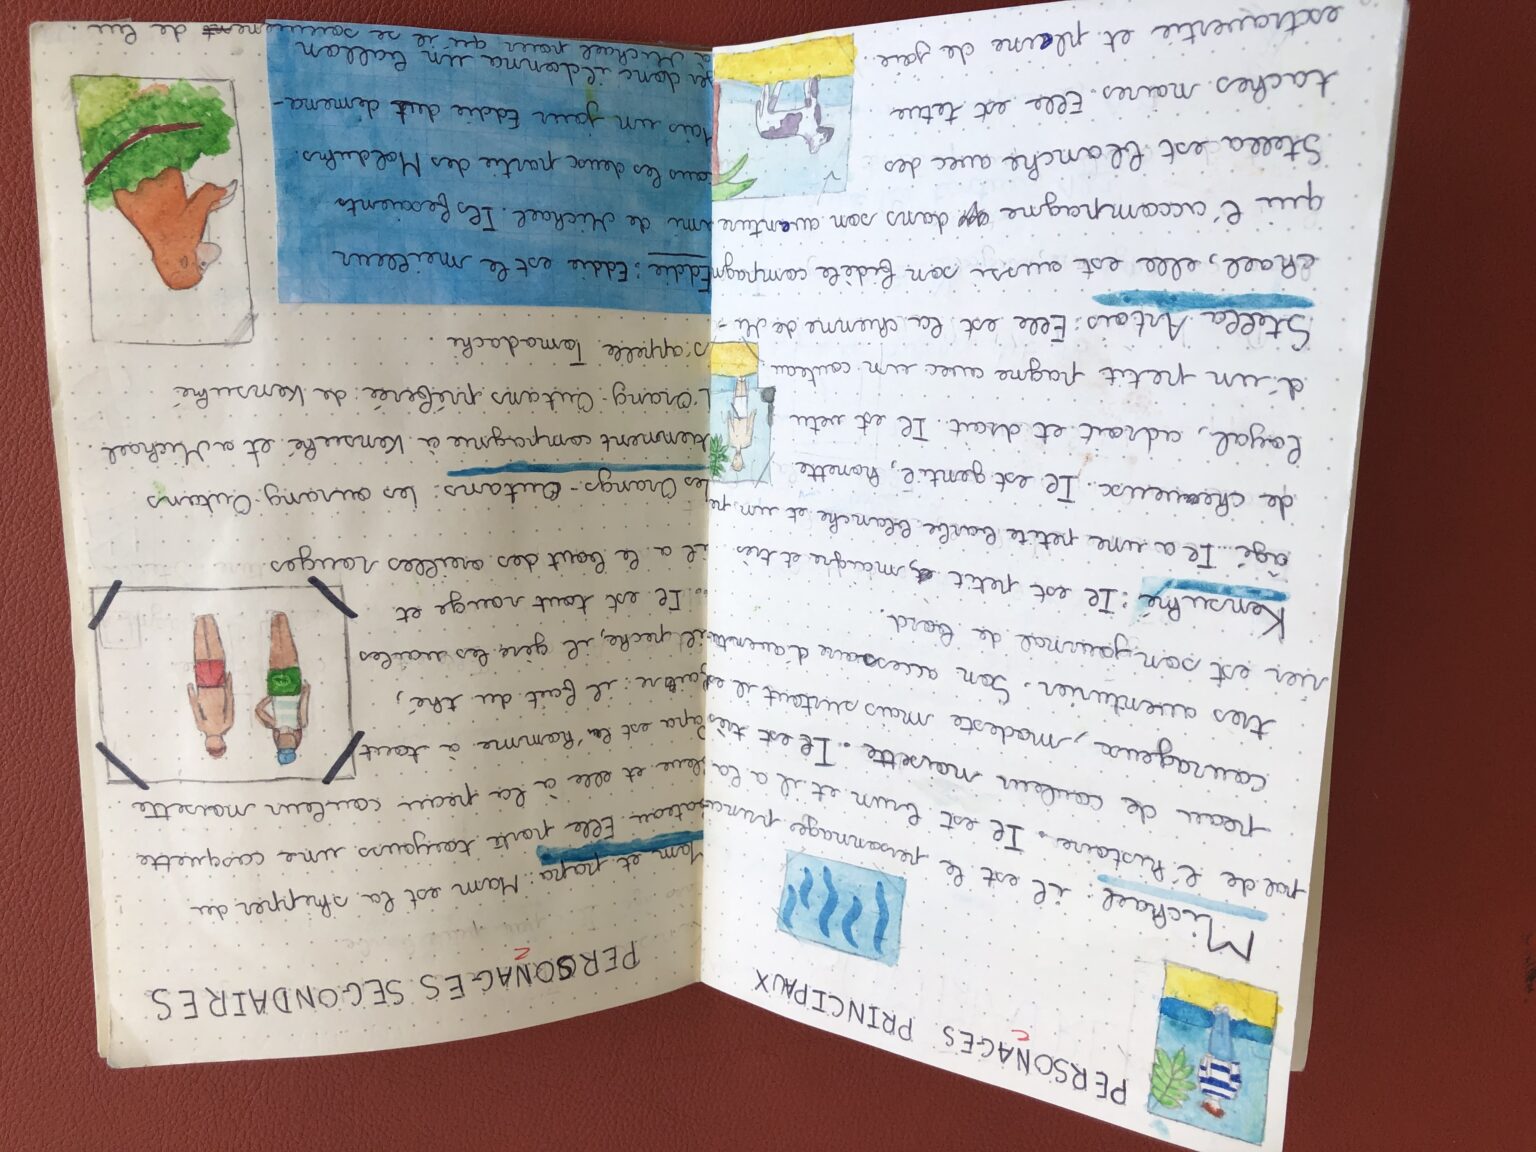 PERSONAGES PRINCIPAUX
Michael : il est le personnage princi
pal de l'histoire. Il est brun et il a la
peau de couleur noisette. Il est très
courageux, modeste mais surtout il est
très aventurier. Son accessoire d'aventu
rier est son journal de bord.
Kensuké : Il est petit, maigre et très
âgé... Il a une petite barbe blanche et un pe
de cheveux. Il est gentil, honnette
loyal, adroit et droit. Il est vetu
d'un petit pagne avec un couteau
Stella Artois : Elle est la chienne de Mi-
chael, elle est aussi son fidèle compagn
qui l'accompagne dans son aventure
Stella est blanche avec des
taches noires. Elle est tetue
extravertie et pleine de joie.
PERSONAGES SEGONDAIRES
Mam et papa : Mam est la skipper du
bateau. Elle porte toujours une casquette
bleue et elle à la peau couleur noisette
Papa est l'homme à tout
faire : il fait du thé,
il peche, il gère les voiles
... Il est tout rouge et
il a le bout des oreilles rouges
Les Orangs-Outans : Les orang-Outans
tiennent compagnie à Kensuké et a Michael
L'Orang-Outans préférée de Kensuké
s'appelle Tomodachi
Eddie : Eddie est le meilleur
ami de Michael. Ils
tous les deux partie des Moldufs.
Mais un jour Eddie dut déména-
ger donc il donna un ballon
à Michael pour qu'il se souviennent de lui